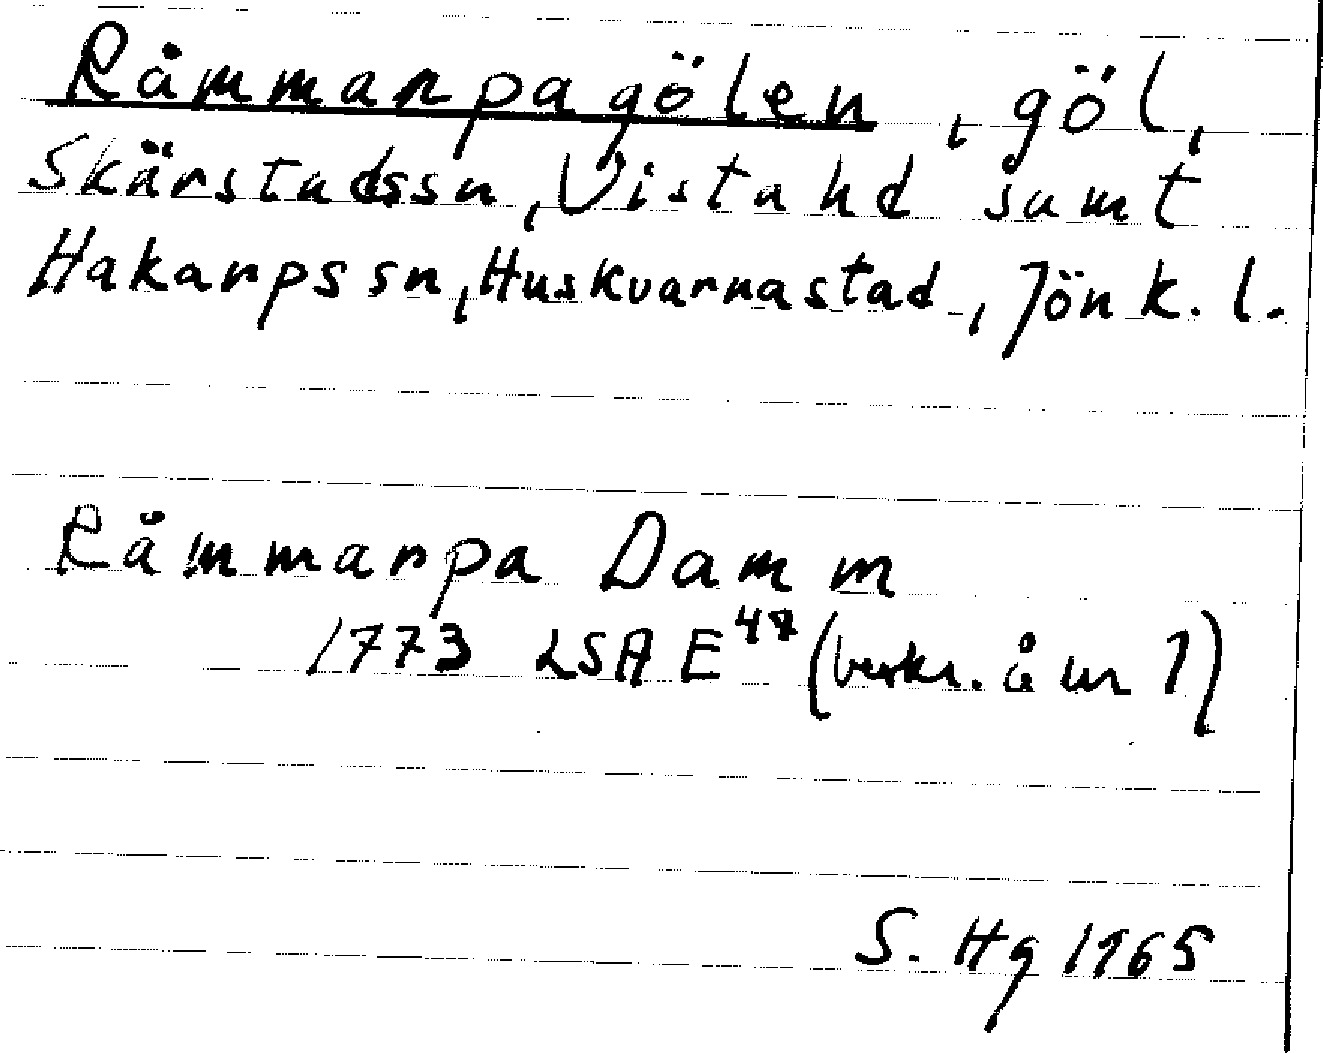 Råmmarpagölen, göl,
Skärstads sn, Vista hd samt
Hakarps sn, Huskvarna stad, Jönk. l.
Råmmarpa Damm
1773 LSA E⁴⁷ (beskr. å nr 1)
S. Hg 1965